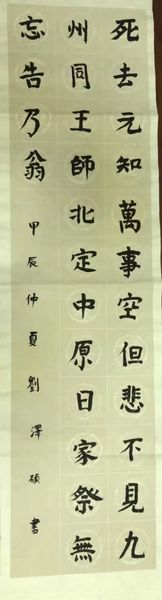 死去元知萬事空但悲不見九
州同王師北定中原日家祭無
忘告乃翁
甲辰仲夏劉澤碩書